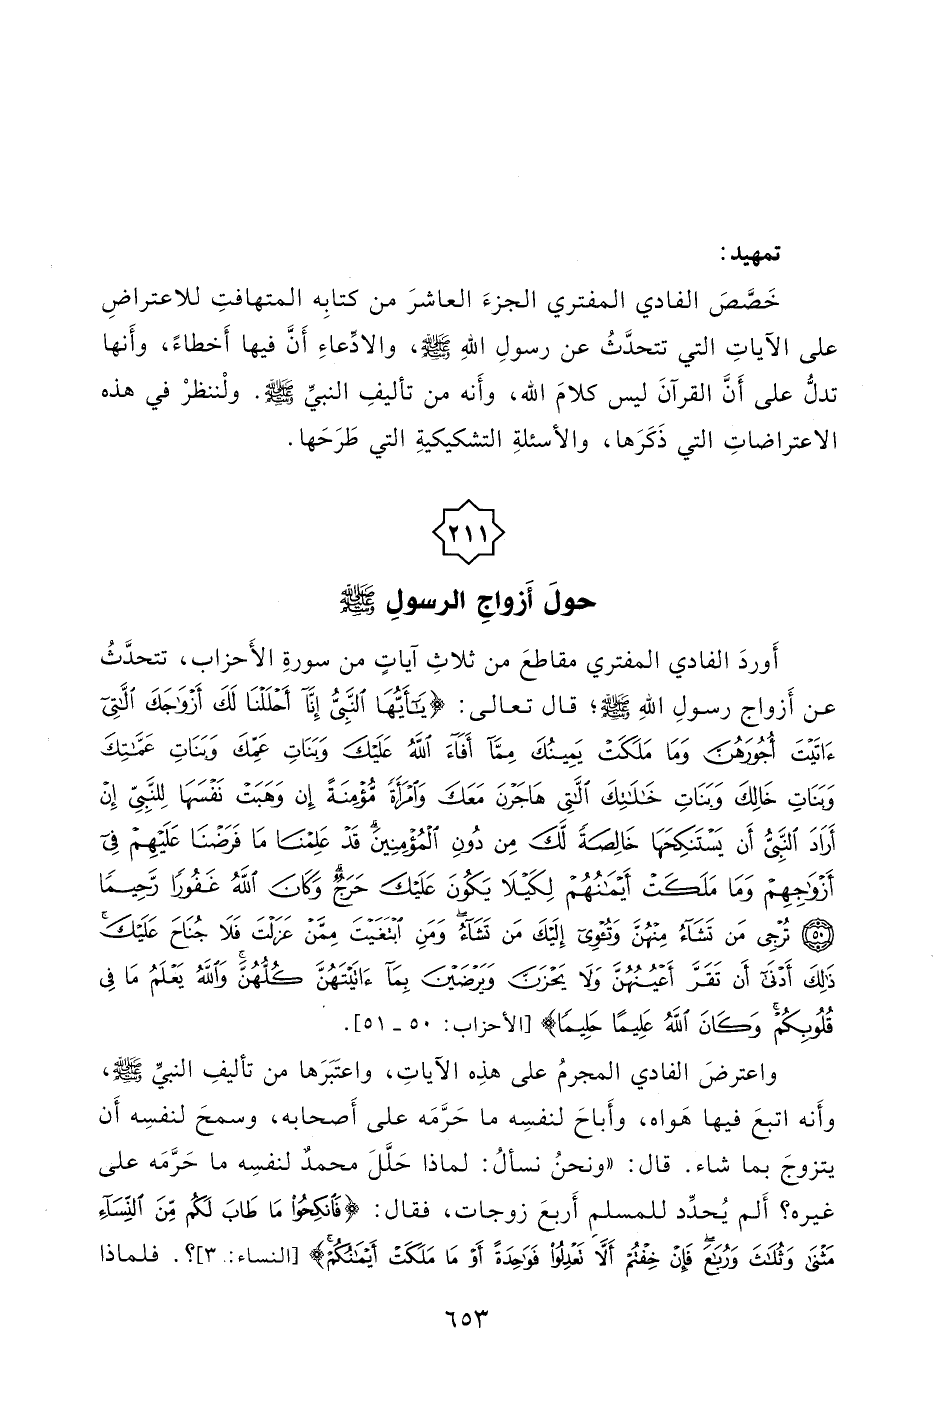 تمهيد:
خَصَّصَ الفادي المفتري الجزءَ العاشرَ من كتابِه المتهافتِ للاعتراضِ
على الآياتِ التي تتحدَّثُ عن رسولِ اللهِ ﷺ، والادِّعاءِ أَنَّ فيها أخطاءً، وأَنها
تدلُّ على أَنَّ القرآنَ ليس كلامَ الله، وأَنه من تأليفِ النبيِّ ﷺ. ولْننظرْ في هذه
الاعتراضاتِ التي ذَكَرَها، والأسئلةِ التشكيكيةِ التي طَرَحَها.
٢١١
حولَ أَزواجِ الرسولِ ﷺ
أَوردَ الفادي المفتري مقاطعَ من ثلاثِ آياتٍ من سورةِ الأَحزاب، تتحدَّثُ
عن أَزواجِ رسولِ اللهِ ﷺ؛ قال تعالى: ﴿يَٰٓأَيُّهَا ٱلنَّبِيُّ إِنَّآ أَحْلَلْنَا لَكَ أَزْوَٰجَكَ ٱلَّٰتِيٓ
ءَاتَيْتَ أُجُورَهُنَّ وَمَا مَلَكَتْ يَمِينُكَ مِمَّآ أَفَآءَ ٱللَّهُ عَلَيْكَ وَبَنَاتِ عَمِّكَ وَبَنَاتِ عَمَّٰتِكَ
وَبَنَاتِ خَالِكَ وَبَنَاتِ خَٰلَٰتِكَ ٱلَّٰتِي هَاجَرْنَ مَعَكَ وَٱمْرَأَةً مُّؤْمِنَةً إِن وَهَبَتْ نَفْسَهَا لِلنَّبِيِّ إِنْ
أَرَادَ ٱلنَّبِيُّ أَن يَسْتَنكِحَهَا خَالِصَةً لَّكَ مِن دُونِ ٱلْمُؤْمِنِينَۗ قَدْ عَلِمْنَا مَا فَرَضْنَا عَلَيْهِمْ فِيٓ
أَزْوَٰجِهِمْ وَمَا مَلَكَتْ أَيْمَٰنُهُمْ لِكَيْلَا يَكُونَ عَلَيْكَ حَرَجٌۗ وَكَانَ ٱللَّهُ غَفُورًا رَّحِيمًا
﴿٥٠﴾ تُرْجِي مَن تَشَآءُ مِنْهُنَّ وَتُـْٔوِيٓ إِلَيْكَ مَن تَشَآءُۖ وَمَنِ ٱبْتَغَيْتَ مِمَّنْ عَزَلْتَ فَلَا جُنَاحَ عَلَيْكَۚ
ذَٰلِكَ أَدْنَىٰٓ أَن تَقَرَّ أَعْيُنُهُنَّ وَلَا يَحْزَنَّ وَيَرْضَيْنَ بِمَآ ءَاتَيْتَهُنَّ كُلُّهُنَّۚ وَٱللَّهُ يَعْلَمُ مَا فِي
قُلُوبِكُمْۚ وَكَانَ ٱللَّهُ عَلِيمًا حَلِيمًا﴾ [الأحزاب: ٥٠ ـ ٥١].
واعترضَ الفادي المجرمُ على هذِه الآيات، واعتَبَرَها من تأليفِ النبيِّ ﷺ،
وأَنه اتبعَ فيها هَواه، وأَباحَ لنفسِه ما حَرَّمَه على أَصحابه، وسمحَ لنفسِه أَن
يتزوجَ بما شاء. قال: «ونحنُ نسأَلُ: لماذا حَلَّلَ محمدٌ لنفسِه ما حَرَّمَه على
غيره؟ أَلم يُحدِّد للمسلمِ أَربعَ زوجات، فقال: ﴿فَٱنكِحُوا۟ مَا طَابَ لَكُم مِّنَ ٱلنِّسَآءِ
مَثْنَىٰ وَثُلَٰثَ وَرُبَٰعَۖ فَإِنْ خِفْتُمْ أَلَّا تَعْدِلُوا۟ فَوَٰحِدَةً أَوْ مَا مَلَكَتْ أَيْمَٰنُكُمْۚ﴾ [النساء: ٣]؟. فلماذا
٦٥٣